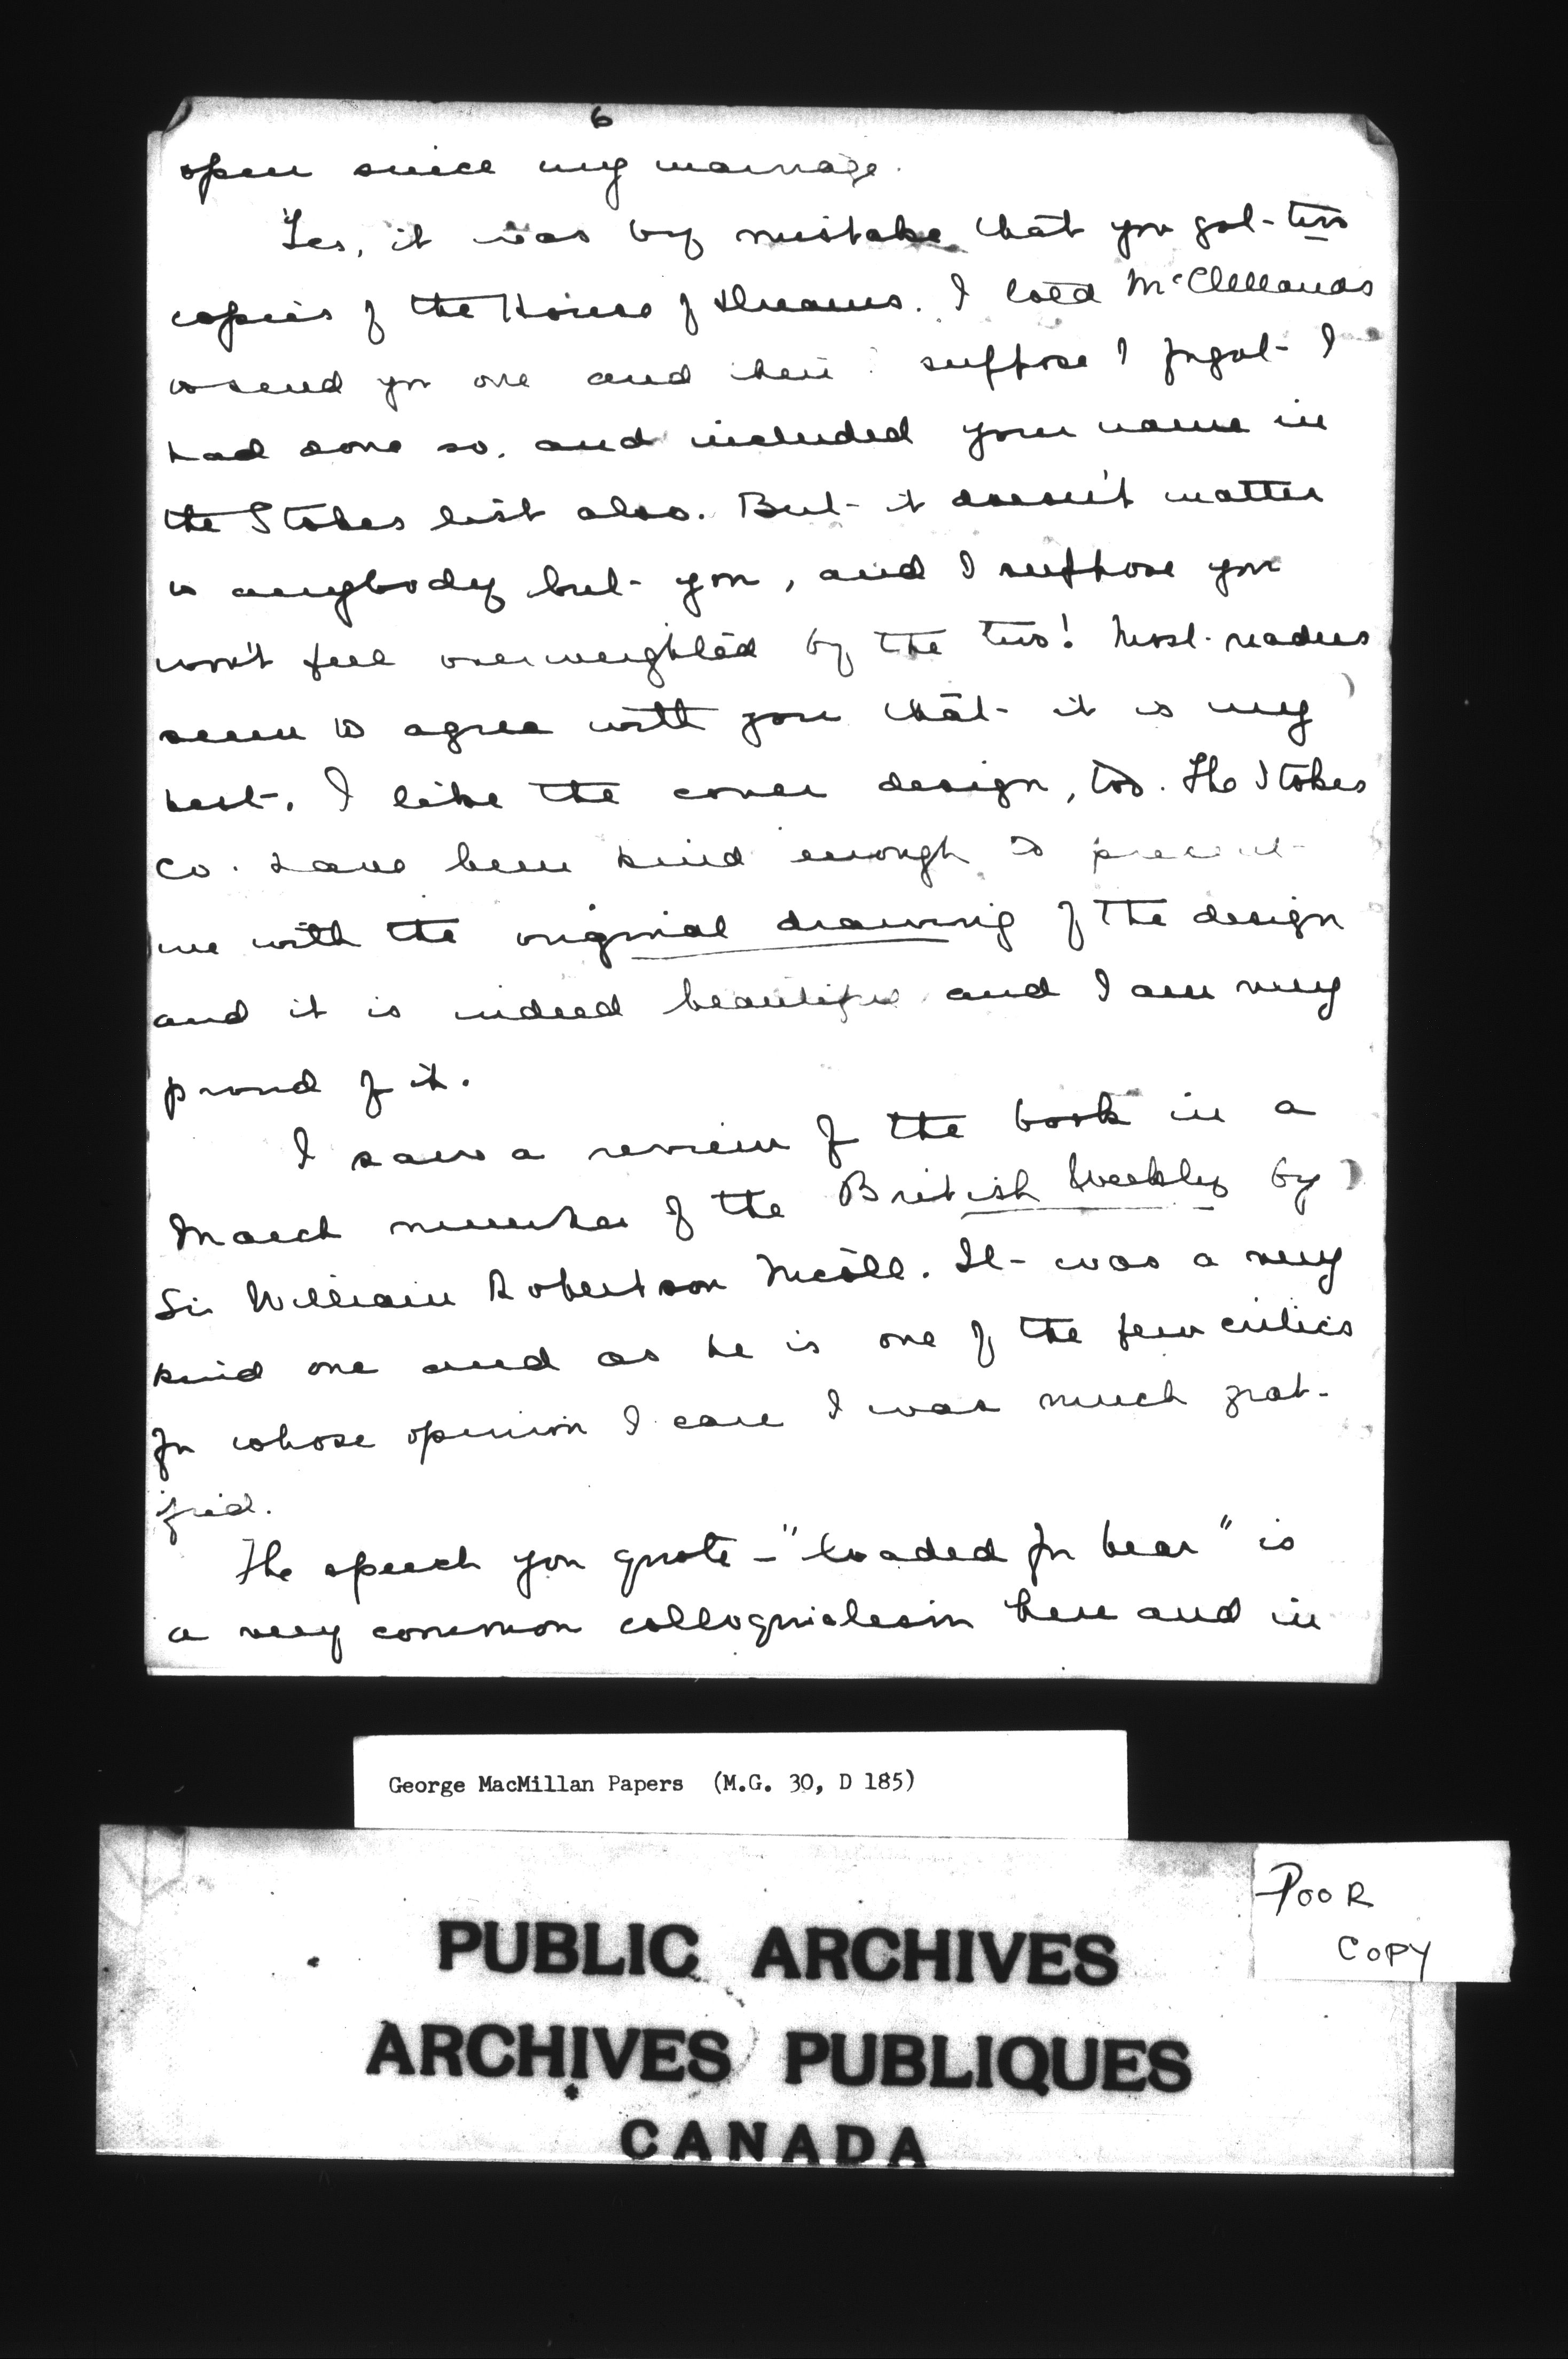 6
open since my marriage.
Yes, it was by mistake that you got two
copies of the House of Dreams. I told McClellands
to send you one and then I suppose I forgot I
had done so, and included your name in
the Stokes list also. But it doesn't matter
to anybody but you, and I suppose you
won't feel overweighted by the two! Most readers
seem to agree with you that it is my
best. I like the cover design, too. The Stokes
Co. have been kind enough to present
me with the original drawing of the design
and it is indeed beautiful and I am very
proud of it.
I saw a review of the book in a
March number of the British Weekly by
Sir William Robertson Nicoll. It was a very
kind one and as he is one of the few critics
for whose opinion I care I was much grat-
ified.
The speech you quote - "loaded for bear" is
a very common colloquialism here and in
George MacMillan Papers (M.G. 30, D 185)
POOR
COPY
PUBLIC ARCHIVES
ARCHIVES PUBLIQUES
CANADA